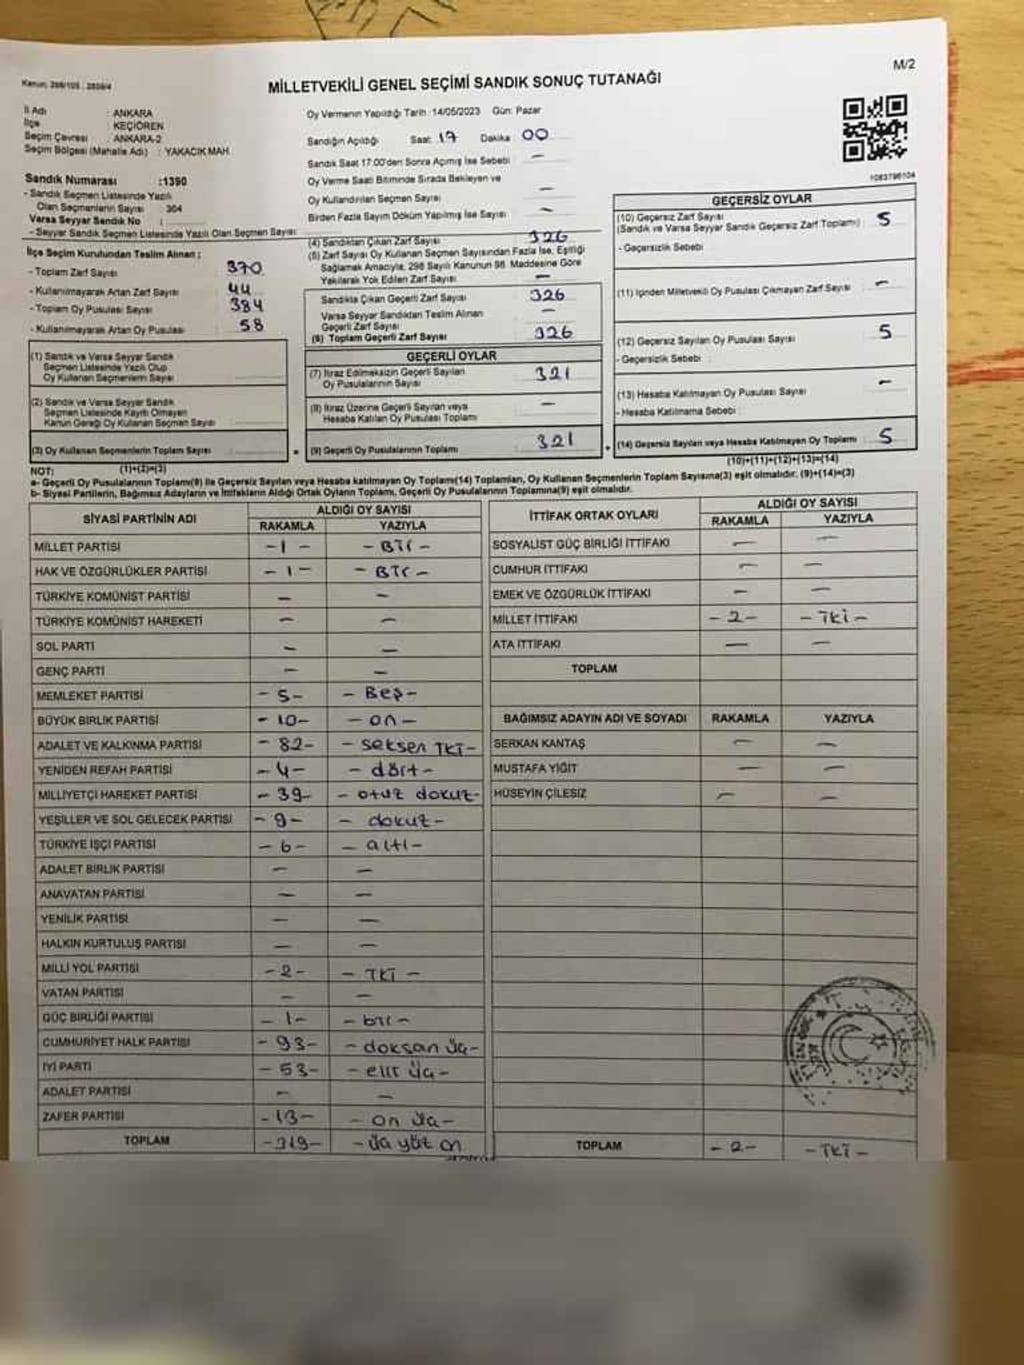 M/2
Kanun: 298/105 : 2839/4
MİLLETVEKİLİ GENEL SEÇİMİ SANDIK SONUÇ TUTANAĞI
İl Adı : ANKARA
İlçe : KEÇİÖREN
Seçim Çevresi : ANKARA-2
Seçim Bölgesi (Mahalle Adı) : YAKACIK MAH.
Oy Vermenin Yapıldığı Tarih :14/05/2023 Gün: Pazar
Sandığın Açıldığı Saat: 17 Dakika : 00
Sandık Saat 17:00'den Sonra Açımış İse Sebebi —
Oy Verme Saati Bitiminde Sırada Bekleyen ve
Oy Kullandırılan Seçmen Sayısı —
Birden Fazla Sayım Döküm Yapılmış İse Sayısı —
1083796104
Sandık Numarası :1390
- Sandık Seçmen Listesinde Yazılı
Olan Seçmenlerin Sayısı : 304
Varsa Seyyar Sandık No :
- Seyyar Sandık Seçmen Listesinde Yazılı Olan Seçmen Sayısı:
İlçe Seçim Kurulundan Teslim Alınan ;
- Toplam Zarf Sayısı 370
- Kullanılmayarak Artan Zarf Sayısı 44
- Toplam Oy Pusulası Sayısı 384
- Kullanılmayarak Artan Oy Pusulası 58
(1) Sandık ve Varsa Seyyar Sandık
Seçmen Listesinde Yazılı Olup
Oy Kullanan Seçmenlerin Sayısı
(2) Sandık ve Varsa Seyyar Sandık
Seçmen Listesinde Kayıtlı Olmayan
Kanun Gereği Oy Kullanan Seçmen Sayısı
(3) Oy Kullanan Seçmenlerin Toplam Sayısı =
(4) Sandıktan Çıkan Zarf Sayısı 326
(5) Zarf Sayısı Oy Kullanan Seçmen Sayısından Fazla İse, Eşitliği
Sağlamak Amacıyla, 298 Sayılı Kanunun 98. Maddesine Göre
Yakılarak Yok Edilen Zarf Sayısı —
Sandıkta Çıkan Geçerli Zarf Sayısı 326
Varsa Seyyar Sandıktan Teslim Alınan
Geçerli Zarf Sayısı —
(6) Toplam Geçerli Zarf Sayısı 326
GEÇERLİ OYLAR
(7) İtiraz Edilmeksizin Geçerli Sayılan
Oy Pusulalarının Sayısı 321
(8) İtiraz Üzerine Geçerli Sayılan veya
Hesaba Katılan Oy Pusulası Toplamı —
(9) Geçerli Oy Pusulalarının Toplamı 321 +
GEÇERSİZ OYLAR
(10) Geçersiz Zarf Sayısı 5
(Sandık ve Varsa Seyyar Sandık Geçersiz Zarf Toplamı)
- Geçersizlik Sebebi
(11) İçinden Milletvekili Oy Pusulası Çıkmayan Zarf Sayısı —
(12) Geçersiz Sayılan Oy Pusulası Sayısı 5
- Geçersizlik Sebebi :
(13) Hesaba Katılmayan Oy Pusulası Sayısı —
- Hesaba Katılmama Sebebi :
(14) Geçersiz Sayılan veya Hesaba Katılmayan Oy Toplamı 5
NOT: (1)+(2)=(3) (10)+(11)+(12)+(13)=(14)
a- Geçerli Oy Pusulalarının Toplamı(9) ile Geçersiz Sayılan veya Hesaba katılmayan Oy Toplamı(14) Toplamları, Oy Kullanan Seçmenlerin Toplam Sayısına(3) eşit olmalıdır. (9)+(14)=(3)
b- Siyasi Partilerin, Bağımsız Adayların ve İttifakların Aldığı Ortak Oyların Toplamı, Geçerli Oy Pusulalarının Toplamına(9) eşit olmalıdır.
SİYASİ PARTİNİN ADI ALDIĞI OY SAYISI
RAKAMLA YAZIYLA
MİLLET PARTİSİ -1- -Bir-
HAK VE ÖZGÜRLÜKLER PARTİSİ -1- -Bir-
TÜRKİYE KOMÜNİST PARTİSİ — —
TÜRKİYE KOMÜNİST HAREKETİ — —
SOL PARTİ — —
GENÇ PARTİ — —
MEMLEKET PARTİSİ -5- -Beş-
BÜYÜK BİRLİK PARTİSİ -10- -on-
ADALET VE KALKINMA PARTİSİ -82- -seksen iki-
YENİDEN REFAH PARTİSİ -4- -dört-
MİLLİYETÇİ HAREKET PARTİSİ -39- -otuz dokuz-
YEŞİLLER VE SOL GELECEK PARTİSİ -9- -dokuz-
TÜRKİYE İŞÇİ PARTİSİ -6- -altı-
ADALET BİRLİK PARTİSİ — —
ANAVATAN PARTİSİ — —
YENİLİK PARTİSİ — —
HALKIN KURTULUŞ PARTİSİ — —
MİLLİ YOL PARTİSİ -2- -iki-
VATAN PARTİSİ — —
GÜÇ BİRLİĞİ PARTİSİ -1- -bir-
CUMHURİYET HALK PARTİSİ -93- -doksan üç-
İYİ PARTİ -53- -elli üç-
ADALET PARTİSİ — —
ZAFER PARTİSİ -13- -on üç-
TOPLAM -319- -üç yüz on
İTTİFAK ORTAK OYLARI ALDIĞI OY SAYISI
RAKAMLA YAZIYLA
SOSYALİST GÜÇ BİRLİĞİ İTTİFAKI — —
CUMHUR İTTİFAKI — —
EMEK VE ÖZGÜRLÜK İTTİFAKI — —
MİLLET İTTİFAKI -2- -iki-
ATA İTTİFAKI — —
TOPLAM
BAĞIMSIZ ADAYIN ADI VE SOYADI RAKAMLA YAZIYLA
SERKAN KANTAŞ — —
MUSTAFA YİĞİT — —
HÜSEYİN ÇİLESİZ — —
TOPLAM -2- -iki-